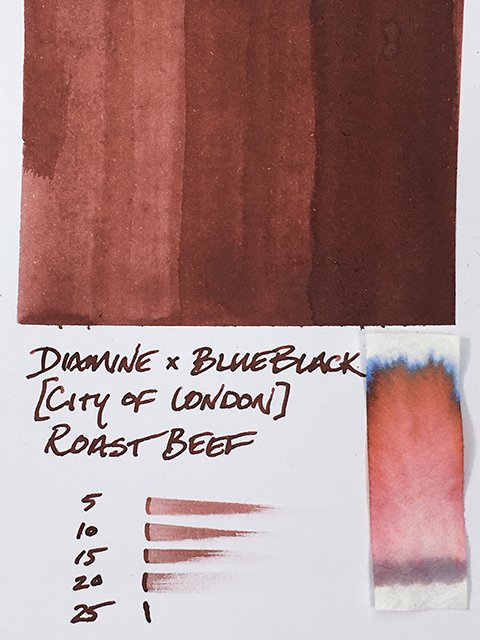 DIAMINE x BLUEBLACK
[CITY OF LONDON]
ROAST BEEF
5
10
15
20
25